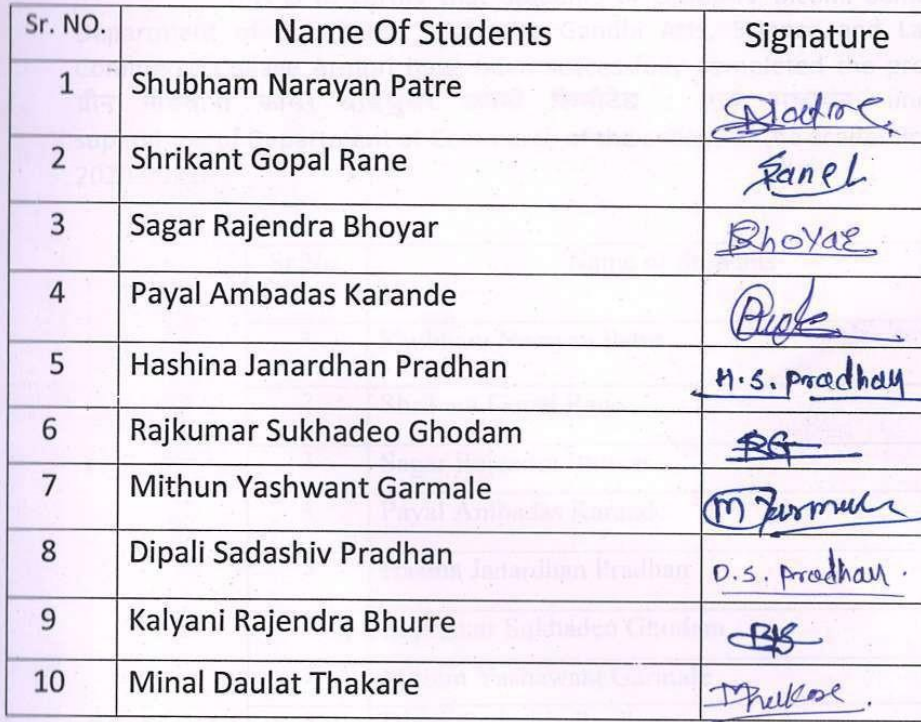 Sr. NO Name Of Students Signature
1 Shubham Narayan Patre
2 Shrikant Gopal Rane Rane
3 Sagar Rajendra Bhoyar Bhoyar
4 Payal Ambadas Karande
5 Hashina Janardhan Pradhan H.S. Pradhan
6 Rajkumar Sukhadeo Ghodam RG
7 Mithun Yashwant Garmale
8 Dipali Sadashiv Pradhan D.S. Pradhan.
9 Kalyani Rajendra Bhurre
10 Minal Daulat Thakare